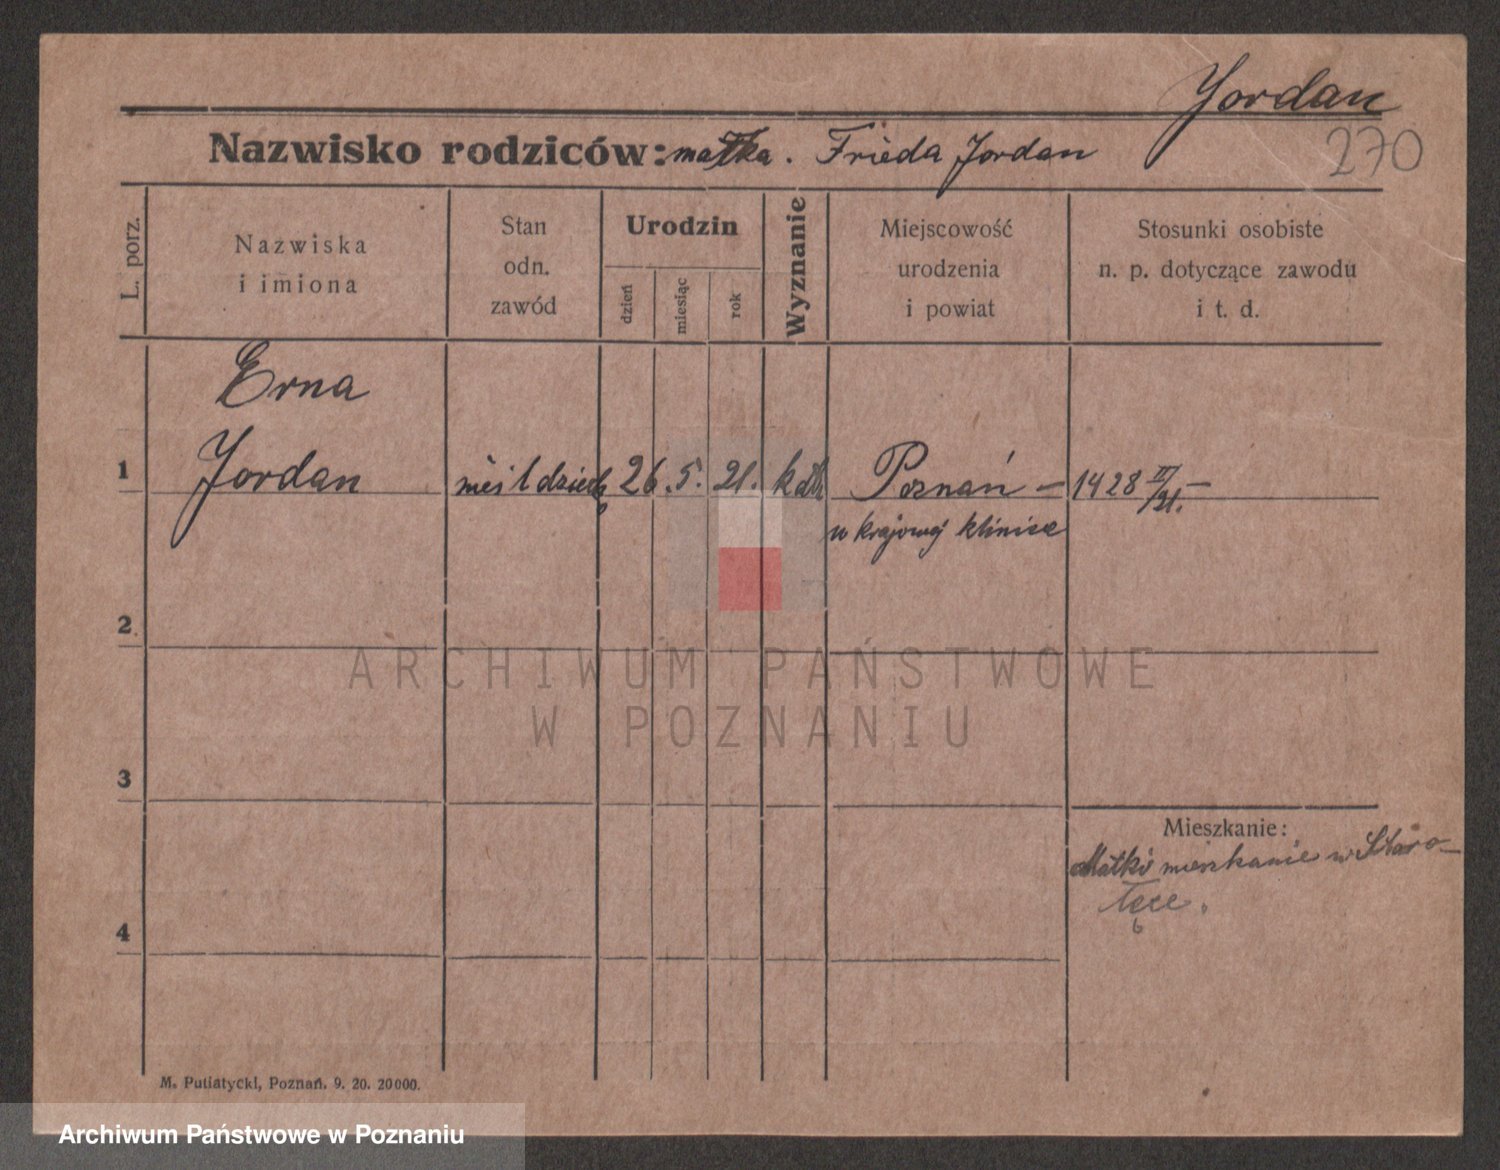 Jordan
270
Nazwisko rodziców: matka. Frieda Jordan
L. porz.
Nazwiska
i imiona
Stan
odn.
zawód
Urodzin
dzień
miesiąc
rok
Wyznanie
Miejscowość
urodzenia
i powiat
Stosunki osobiste
n. p. dotyczące zawodu
i t. d.
Erna
1 Jordan dziecko 26. 5. 21. kath Poznań – 1428 II/21. –
w krajowej klinice
2
ARCHIWUM PAŃSTWOWE
W POZNANIU
3
Mieszkanie:
Matki mieszkanie w Staro-
łęce.
4
M. Putiatycki, Poznań. 9. 20. 20000.
Archiwum Państwowe w Poznaniu